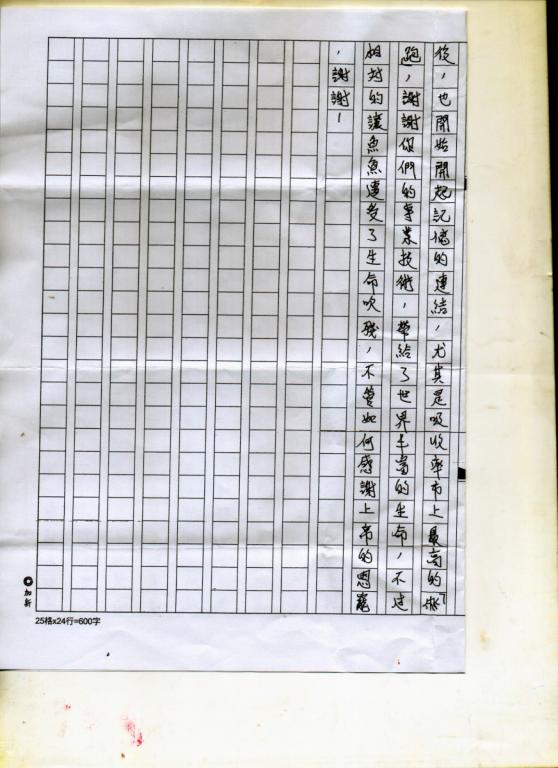 後，也開始開起記憶的連結，尤其是吸收率市上最高的
跑，謝謝你們的專業技術，帶給了世界丰富的生命，不过
相对的讓魚魚遭受了生命吹残，不管如何感謝上帝的恩寵
，謝謝！
25格x24行=600字
加新